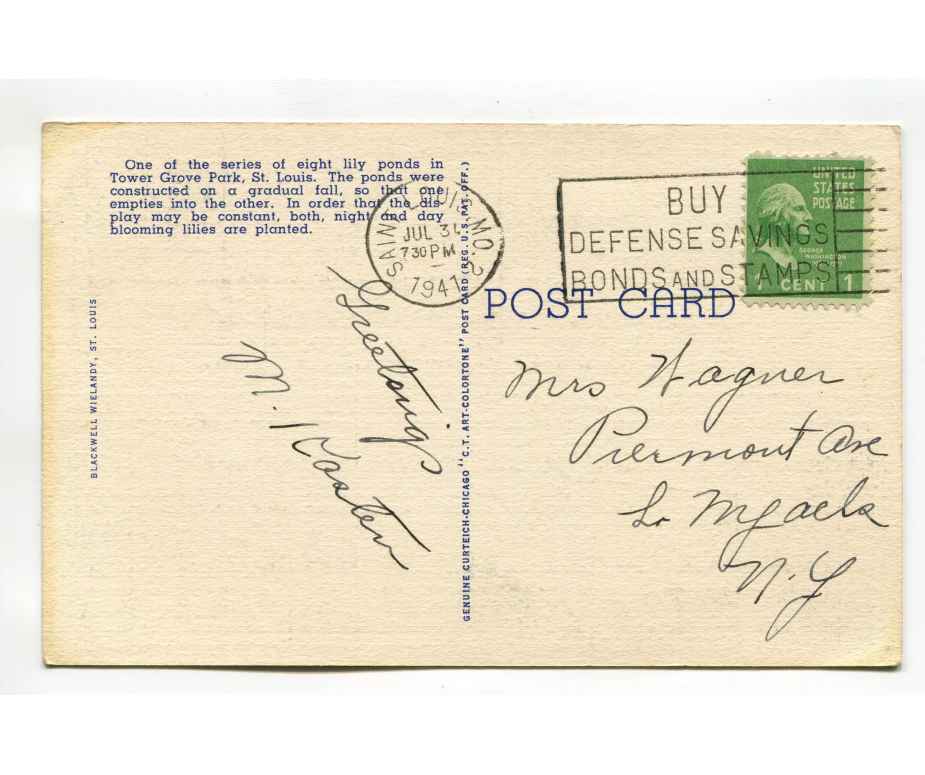 One of the series of eight lily ponds in
Tower Grove Park, St. Louis. The ponds were
constructed on a gradual fall, so that one
empties into the other. In order that the dis-
play may be constant, both, night and day
blooming lilies are planted.
BLACKWELL WIELANDY, ST. LOUIS
Greetings
M. Koster
GENUINE CURTEICH-CHICAGO "C.T. ART-COLORTONE" POST CARD (REG. U.S. PAT. OFF.)
SAINT LOUIS, MO. 2
JUL 31
7 30 PM
1941
BUY
DEFENSE SAVINGS
BONDS AND STAMPS
UNITED
STATES
POSTAGE
GEORGE
WASHINGTON
1 CENT 1
POST CARD
Mrs Wagner
Piermont Ave
N.Y